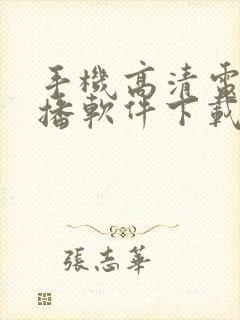 手機高清電
播軟件下載
張志華